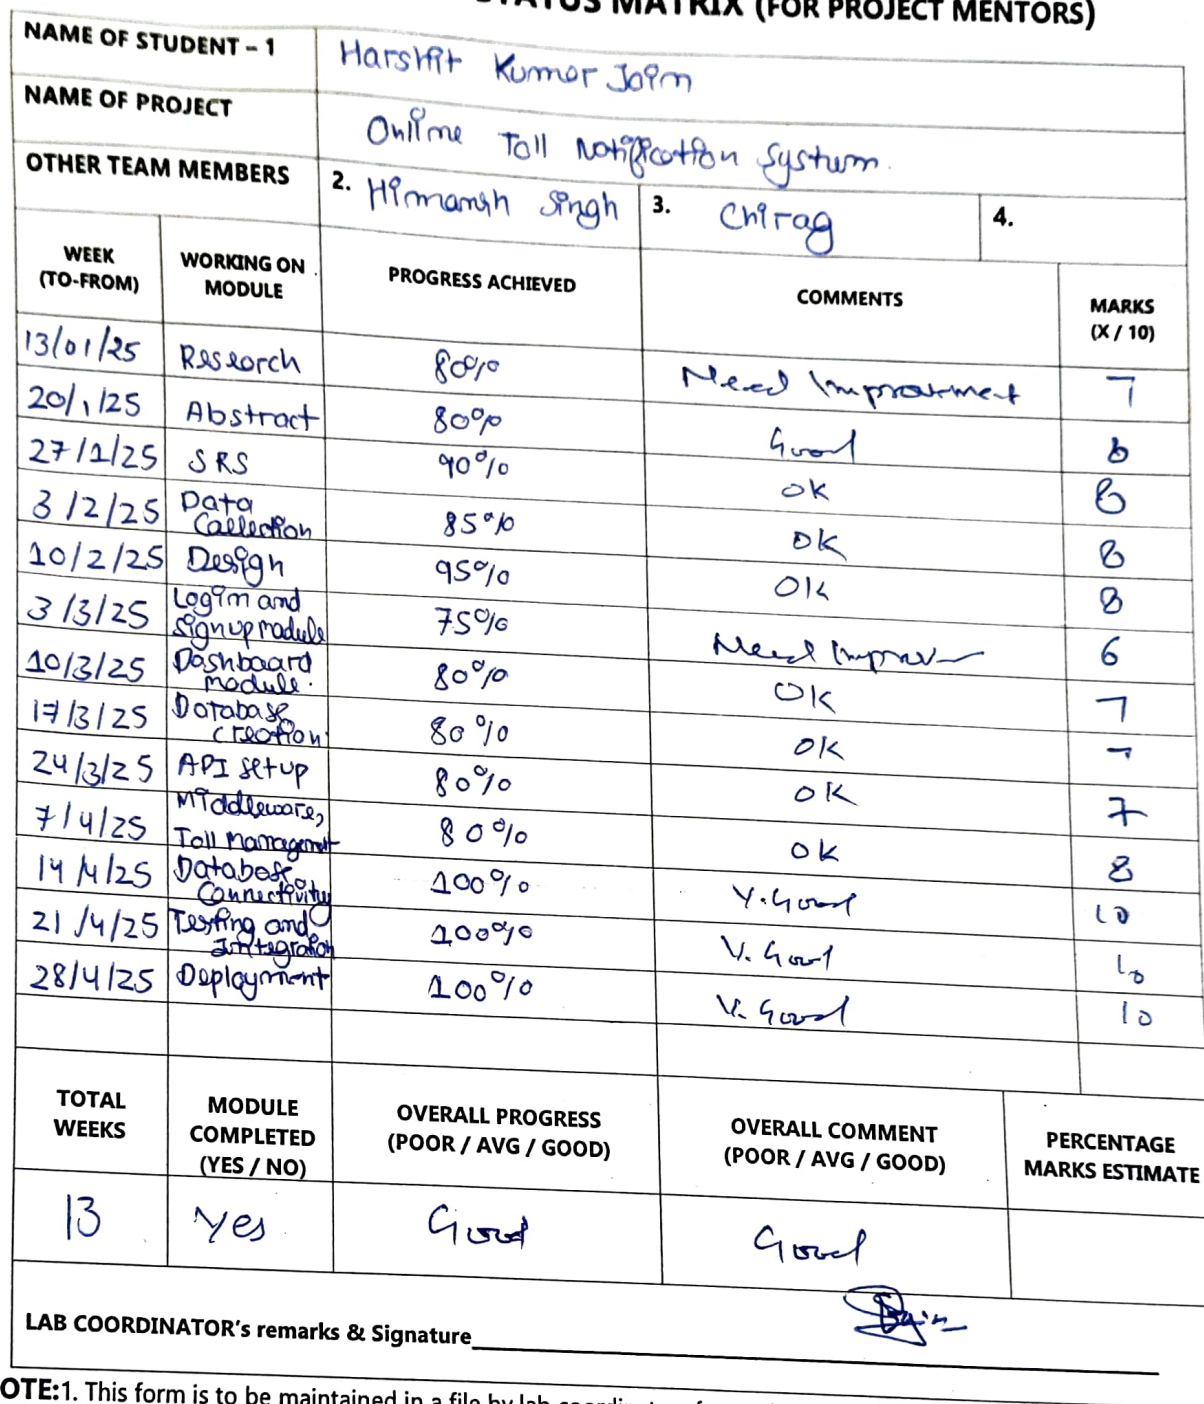 STATUS MATRIX (FOR PROJECT MENTORS)
NAME OF STUDENT – 1 Harshit Kumar Jain
NAME OF PROJECT Online Toll Notification System.
OTHER TEAM MEMBERS 2. Himansh Singh 3. Chirag 4.
WEEK (TO-FROM) WORKING ON MODULE PROGRESS ACHIEVED COMMENTS MARKS (X / 10)
13/01/25 Research 80% Need Improvement 7
20/1/25 Abstract 80% Good 8
27/1/25 SRS 90% OK 8
3/2/25 Data Collection 85% OK 8
10/2/25 Design 95% OK 8
3/3/25 Login and Signup module 75% Need Improv 6
10/3/25 Dashboard module. 80% OK 7
17/3/25 Database creation 80% OK 7
24/3/25 API setup 80% OK 7
7/4/25 Middleware, Toll Management 80% OK 8
14/4/25 Database Connectivity 100% V. Good 10
21/4/25 Testing and Integration 100% V. Good 10
28/4/25 Deployment 100% V. Good 10
TOTAL WEEKS MODULE COMPLETED (YES / NO) OVERALL PROGRESS (POOR / AVG / GOOD) OVERALL COMMENT (POOR / AVG / GOOD) PERCENTAGE MARKS ESTIMATE
13 Yes Good Good
LAB COORDINATOR's remarks & Signature
OTE:1. This form is to be maintained in a file by lab